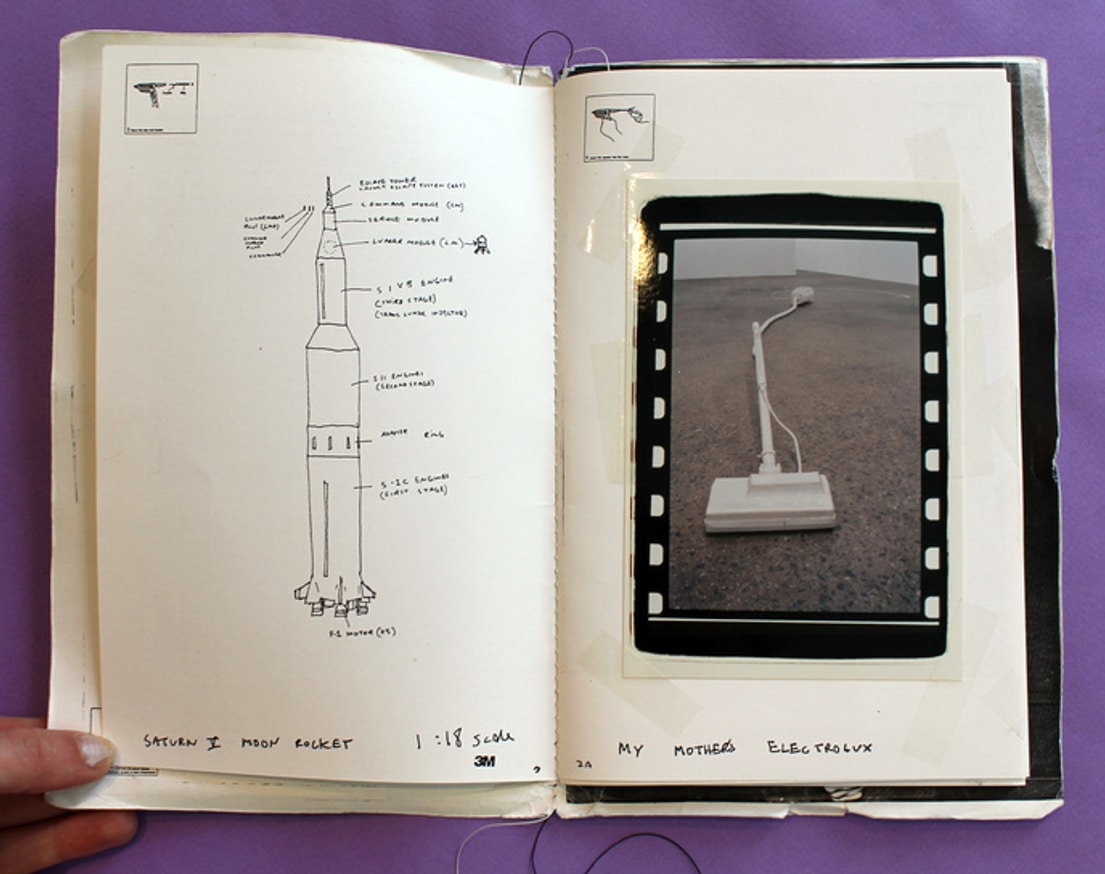 ESCAPE TOWER
LAUNCH ESCAPE SYSTEM (LES)
COMMAND MODULE (CM)
SERVICE MODULE
LUNAR MODULE (LM)
COMMANDER
S IVB ENGINE
(THIRD STAGE)
(TRANS LUNAR INJECTOR)
S II ENGINES
(SECOND STAGE)
ADAPTER RING
S-IC ENGINES
(FIRST STAGE)
F-1 MOTOR (X5)
SATURN V MOON ROCKET 1:18 scale
3M
2
MY MOTHER'S ELECTROLUX
2A